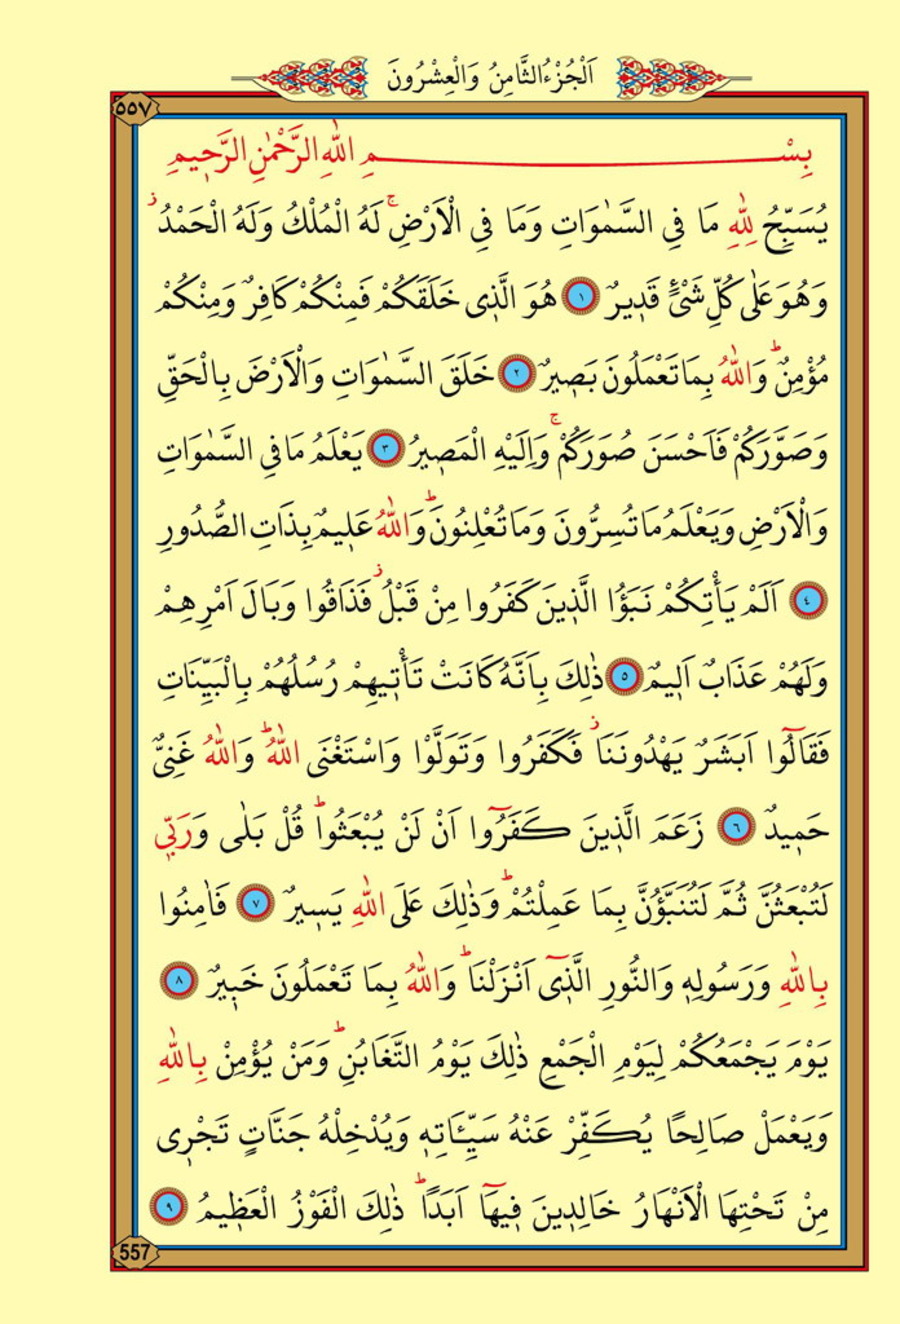 اَلْجُزْءُ الثَّامِنُ وَالْعِشْرُونَ
٥٥٧
بِسْمِ اللّٰهِ الرَّحْمٰنِ الرَّحٖيمِ
يُسَبِّحُ لِلّٰهِ مَا فِي السَّمٰوَاتِ وَمَا فِي الْاَرْضِۚ لَهُ الْمُلْكُ وَلَهُ الْحَمْدُؗ
وَهُوَ عَلٰى كُلِّ شَيْءٍ قَدٖيرٌ ١ هُوَ الَّذٖى خَلَقَكُمْ فَمِنْكُمْ كَافِرٌ وَمِنْكُمْ
مُؤْمِنٌؕ وَاللّٰهُ بِمَا تَعْمَلُونَ بَصٖيرٌ ٢ خَلَقَ السَّمٰوَاتِ وَالْاَرْضَ بِالْحَقِّ
وَصَوَّرَكُمْ فَاَحْسَنَ صُوَرَكُمْۚ وَاِلَيْهِ الْمَصٖيرُ ٣ يَعْلَمُ مَا فِي السَّمٰوَاتِ
وَالْاَرْضِ وَيَعْلَمُ مَا تُسِرُّونَ وَمَا تُعْلِنُونَؕ وَاللّٰهُ عَلٖيمٌ بِذَاتِ الصُّدُورِ
٤ اَلَمْ يَأْتِكُمْ نَبَؤُا الَّذٖينَ كَفَرُوا مِنْ قَبْلُؗ فَذَاقُوا وَبَالَ اَمْرِهِمْ
وَلَهُمْ عَذَابٌ اَلٖيمٌ ٥ ذٰلِكَ بِاَنَّهُ كَانَتْ تَأْتٖيهِمْ رُسُلُهُمْ بِالْبَيِّنَاتِ
فَقَالُٓوا اَبَشَرٌ يَهْدُونَنَاؗ فَكَفَرُوا وَتَوَلَّوْا وَاسْتَغْنَى اللّٰهُؕ وَاللّٰهُ غَنِىٌّ
حَمٖيدٌ ٦ زَعَمَ الَّذٖينَ كَفَرُٓوا اَنْ لَنْ يُبْعَثُواؕ قُلْ بَلٰى وَرَبّٖي
لَتُبْعَثُنَّ ثُمَّ لَتُنَبَّؤُنَّ بِمَا عَمِلْتُمْؕ وَذٰلِكَ عَلَى اللّٰهِ يَسٖيرٌ ٧ فَاٰمِنُوا
بِاللّٰهِ وَرَسُولِهٖ وَالنُّورِ الَّذٖٓى اَنْزَلْنَاؕ وَاللّٰهُ بِمَا تَعْمَلُونَ خَبٖيرٌ ٨
يَوْمَ يَجْمَعُكُمْ لِيَوْمِ الْجَمْعِ ذٰلِكَ يَوْمُ التَّغَابُنِؕ وَمَنْ يُؤْمِنْ بِاللّٰهِ
وَيَعْمَلْ صَالِحًا يُكَفِّرْ عَنْهُ سَيِّـَٔاتِهٖ وَيُدْخِلْهُ جَنَّاتٍ تَجْرٖى
مِنْ تَحْتِهَا الْاَنْهَارُ خَالِدٖينَ فٖيهَٓا اَبَدًاؕ ذٰلِكَ الْفَوْزُ الْعَظٖيمُ ٩
557